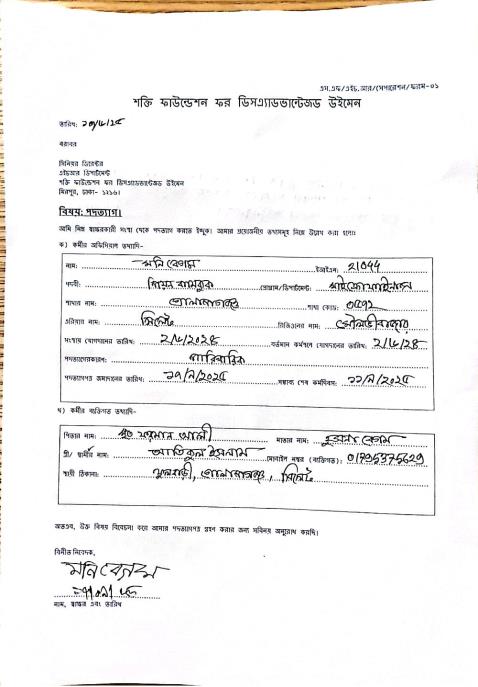 এস.এফ/এইচ.আর/(সেপারেশন/ফরম-০১
শক্তি ফাউন্ডেশন ফর ডিসএ্যাডভান্টেজড উইমেন
তারিখ:
বরাবর
সিনিয়র ডিরেক্টর
এইচআর ডিপার্টমেন্ট
শক্তি ফাউন্ডেশন ফর ডিসএ্যাডভান্টেজড উইমেন
মিরপুর, ঢাকা- ১২১৬।
বিষয়: পদত্যাগ।
আমি নিম্ন স্বাক্ষরকারী সংস্থা থেকে পদত্যাগ করতে ইচ্ছুক। আমার প্রয়োজনীয় তথ্যসমূহ নিম্নে উল্লেখ করা হলো:
ক) কর্মীর অফিসিয়াল তথ্যাদি-
নাম: মনি বেগম ইআইএন: 21044
পদবী: প্রোগ্রাম/ডিপার্টমেন্ট:
শাখার নাম: গোলাপগঞ্জ শাখা কোড:
এরিয়ার নাম: সিলেট রিজিওনের নাম: মৌলভীবাজার
সংস্থায় যোগদানের তারিখ: ২/৬/২০২৪ বর্তমান কর্মস্থলে যোগদানের তারিখ: ২/৬/২৪
পদত্যাগের কারণ: পারিবারিক
পদত্যাগপত্র জমাদানের তারিখ: সম্ভাব্য শেষ কর্মদিবস:
খ) কর্মীর ব্যক্তিগত তথ্যাদি-
পিতার নাম: আলী মাতার নাম: বেগম
স্ত্রী/ স্বামীর নাম: আতিকুল ইসলাম মোবাইল নম্বর (ব্যক্তিগত): 01795375629
স্থায়ী ঠিকানা: ফুলবাড়ী, গোলাপগঞ্জ, সিলেট
অতএব, উক্ত বিষয় বিবেচনা করে আমার পদত্যাগপত্র গ্রহণ করার জন্য সবিনয় অনুরোধ করছি।
বিনীত নিবেদক,
মনি বেগম
নাম, স্বাক্ষর এবং তারিখ